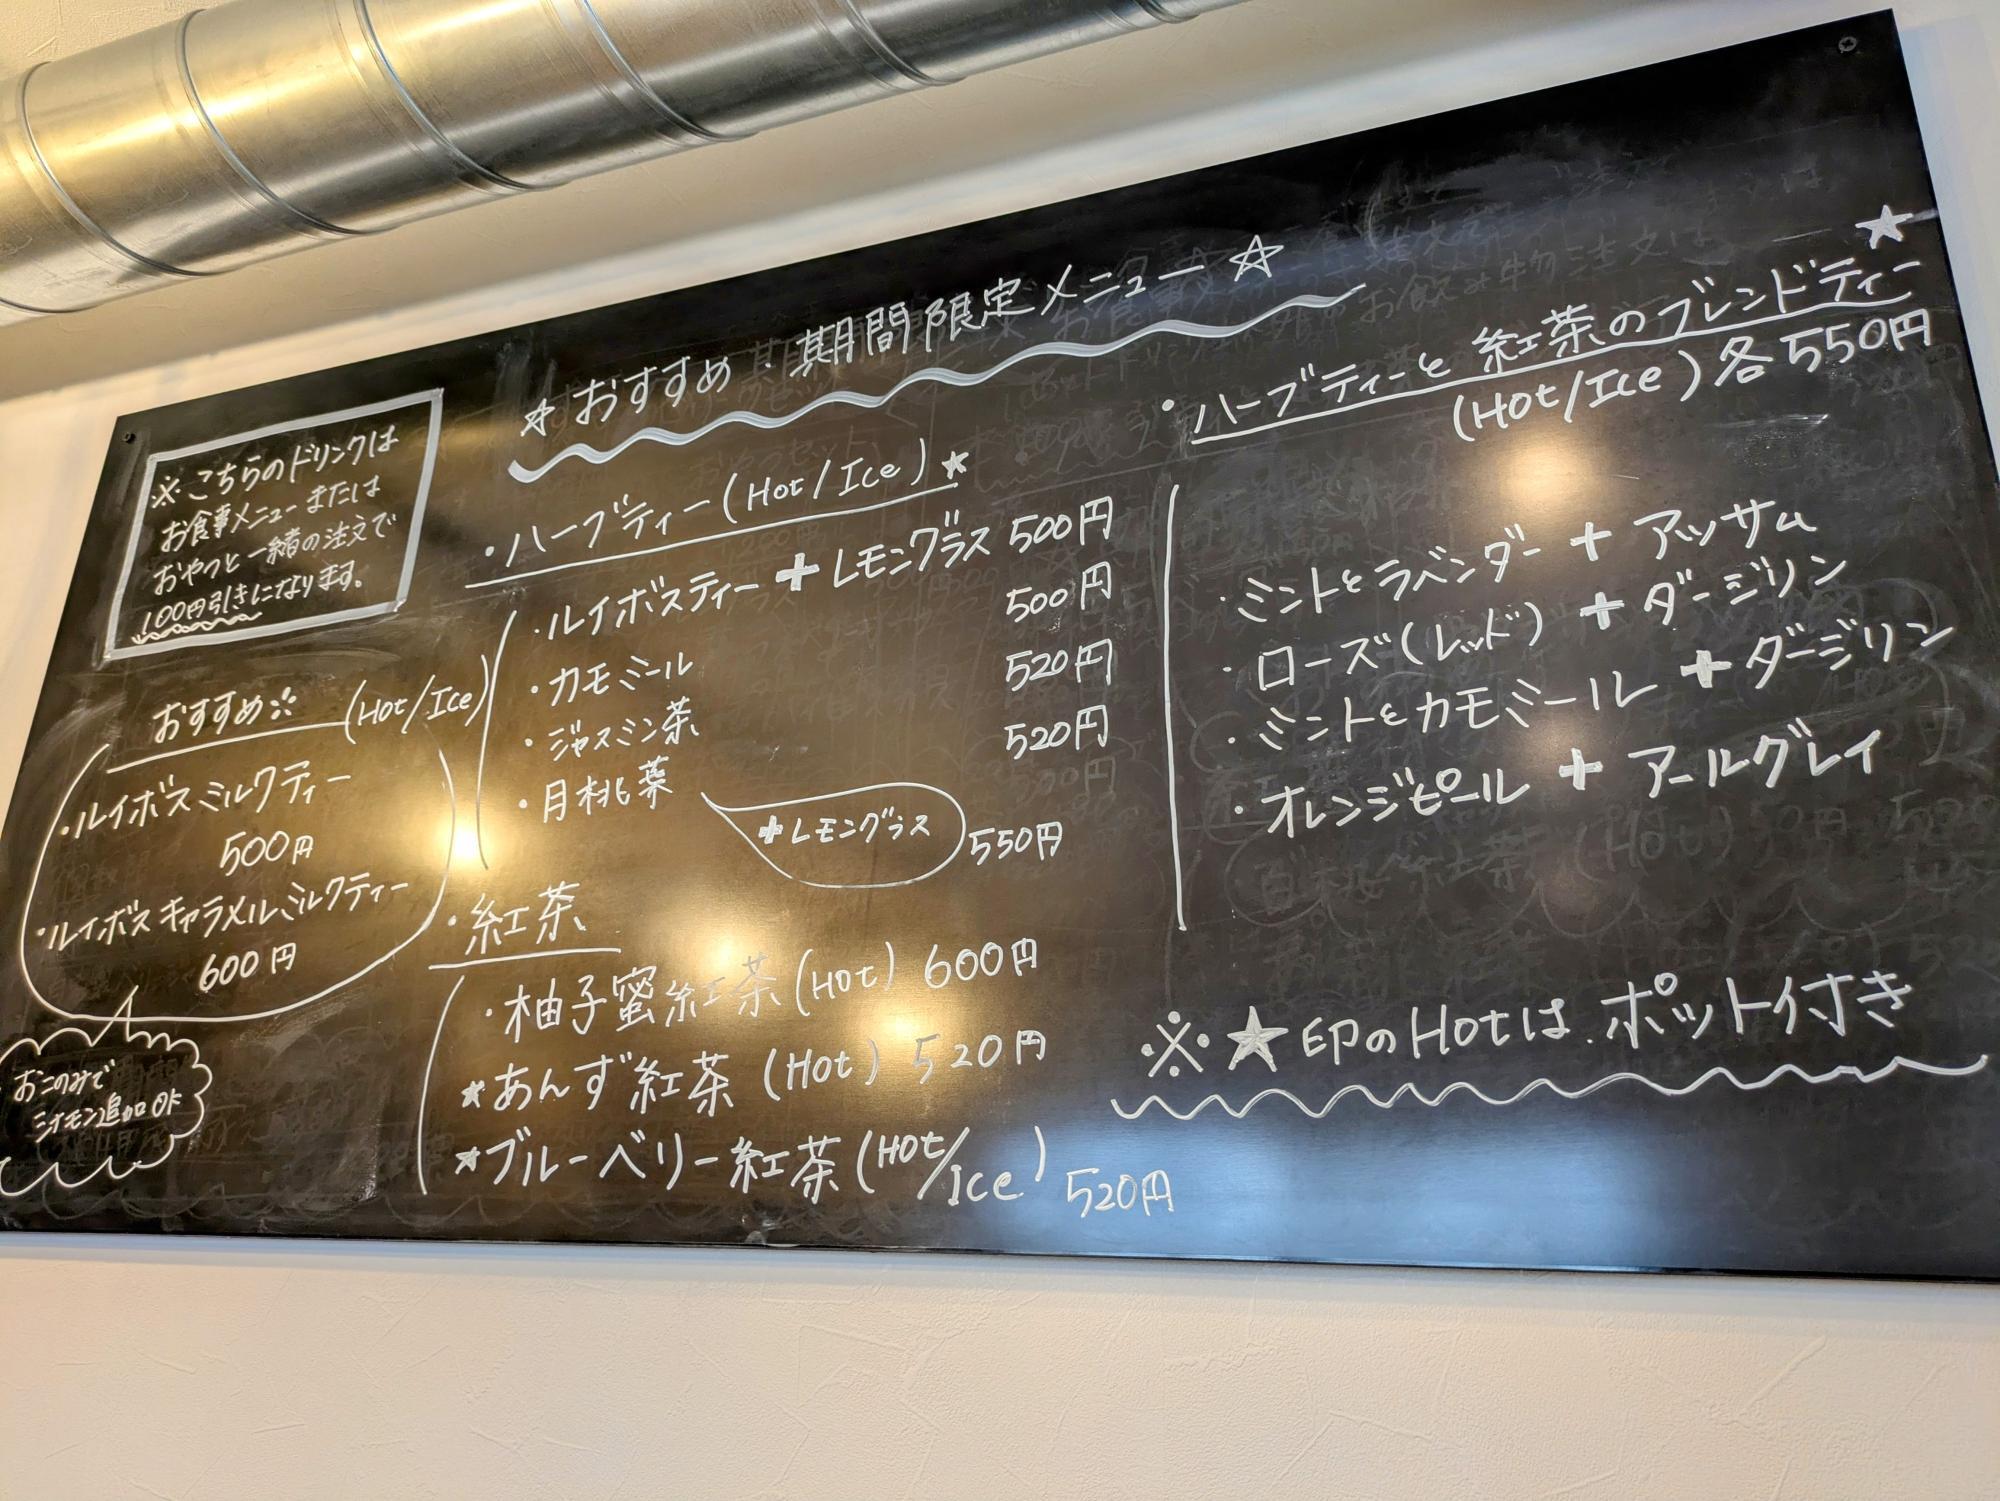 ☆おすすめ・期間限定メニュー☆
※こちらのドリンクは
お食事メニューまたは
おやつと一緒の注文で
100円引きになります。
おすすめ※ (Hot/Ice)
・ルイボスミルクティー
500円
・ルイボスキャラメルミルクティー
600円
おこのみで
シナモン追加OK
・ハーブティー(Hot/Ice)★
・ルイボスティー+レモングラス 500円
・カモミール 500円
・ジャスミン茶 520円
・月桃葉 520円
+レモングラス 550円
・紅茶
・柚子蜜紅茶(Hot) 600円
★あんず紅茶(Hot) 520円
★ブルーベリー紅茶(Hot/Ice) 520円
★
・ハーブティーと紅茶のブレンドティー
(Hot/Ice)各550円
・ミントとラベンダー+アッサム
・ローズ(レッド)+ダージリン
・ミントとカモミール+ダージリン
・オレンジピール+アールグレイ
※★印のHotは、ポット付き